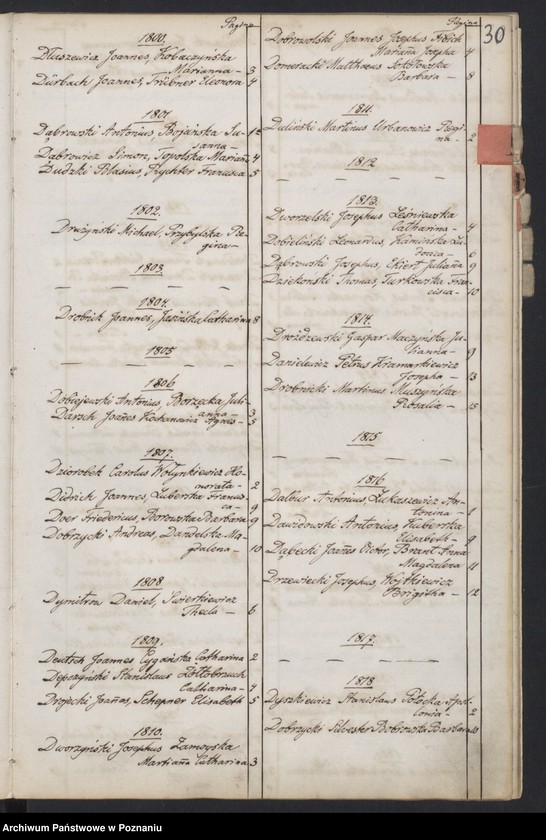 Pagina
1800.
Dłuszewicz Joannes, Kobaczyńska
Marianna — 3
Dürbach Joannes, Trübner Eleonora 4
1801
Dąbrowski Antonius, Bojańska Su-
sanna — 1
Dąbrowicz Simon, Topolska Mariana 4
Dudzki Blasius, Rychter Francisca 5
1802.
Drużyński Michael, Przybylska Re-
gina —
1803
— — — — —
1804.
Drobick Joannes, Jasińska Catharina 8
1805
— — — — —
1806
Dobiejewski Antonius, Borzecka Juli-
anna — 3
Darsch Joanes Kochanowicz Agnes — 5
1807.
Dziorobek Carolus Wołynkiewicz Ho-
norata — 2
Didrich Joannes, Zuberska Francis-
ca — 9
Doer Friedericus, Borowska Barbara 9
Dobrzycki Andreas, Dandelska Ma-
gdalena — 10
1808
Dymitrow Daniel, Swierkiewicz
Thecla — 6
1809.
Deutsch Joannes Cygańska Catharina 2
Depczyński Stanislaus Żółtobrzuch
Catharina — 4
Drojecki Joanes, Schepner Elisabeth 5
1810.
Dworzyński Josephus Zamoyska
Martianna Catharina 3
Pagina
30
Dobrowolski Joannes Josephus
Marianna Josepha 4
Domeracki Matthaeus Sokołowska
Barbara — 8
1811.
Duliński Martinus Urbanowicz Regi-
na — 2
1812
— — — — —
1813.
Dworzelski Josephus Leśniewska
Catharina — 4
Dobieliński Leonardus, Kaminska Lu-
dovica — 6
Dąbrowski Josephus, Ekiert Julianna 9
Dziekonski Thomas, Turkowska Fran-
cisca — 10
1814.
Drożdzewski Gaspar Maczyńska Ju-
lianna — 9
Danielewicz Petrus Kramarkiewicz
Josepha — 13
Drobnicki Martinus Muszyńska
Rosalia — 15
1815
1816
Dalbus Antonius, Łukaszewicz An-
tonina — 1
Dawidowski Antonius, Huberska
Elisabeth — 9
Dąbecki Joanes Victor, Brant Anna
Magdalena 11
Drzewiecki Josephus, Woytkiewicz
Brigitha — 12
1817.
— — — — —
1818
Dyszkiewicz Stanislaus Potocka Apol-
lonia — 2
Dobrzycki Silvester Bobrowska Barbara 10
Archiwum Państwowe w Poznaniu
szukajwarchiwach.pl